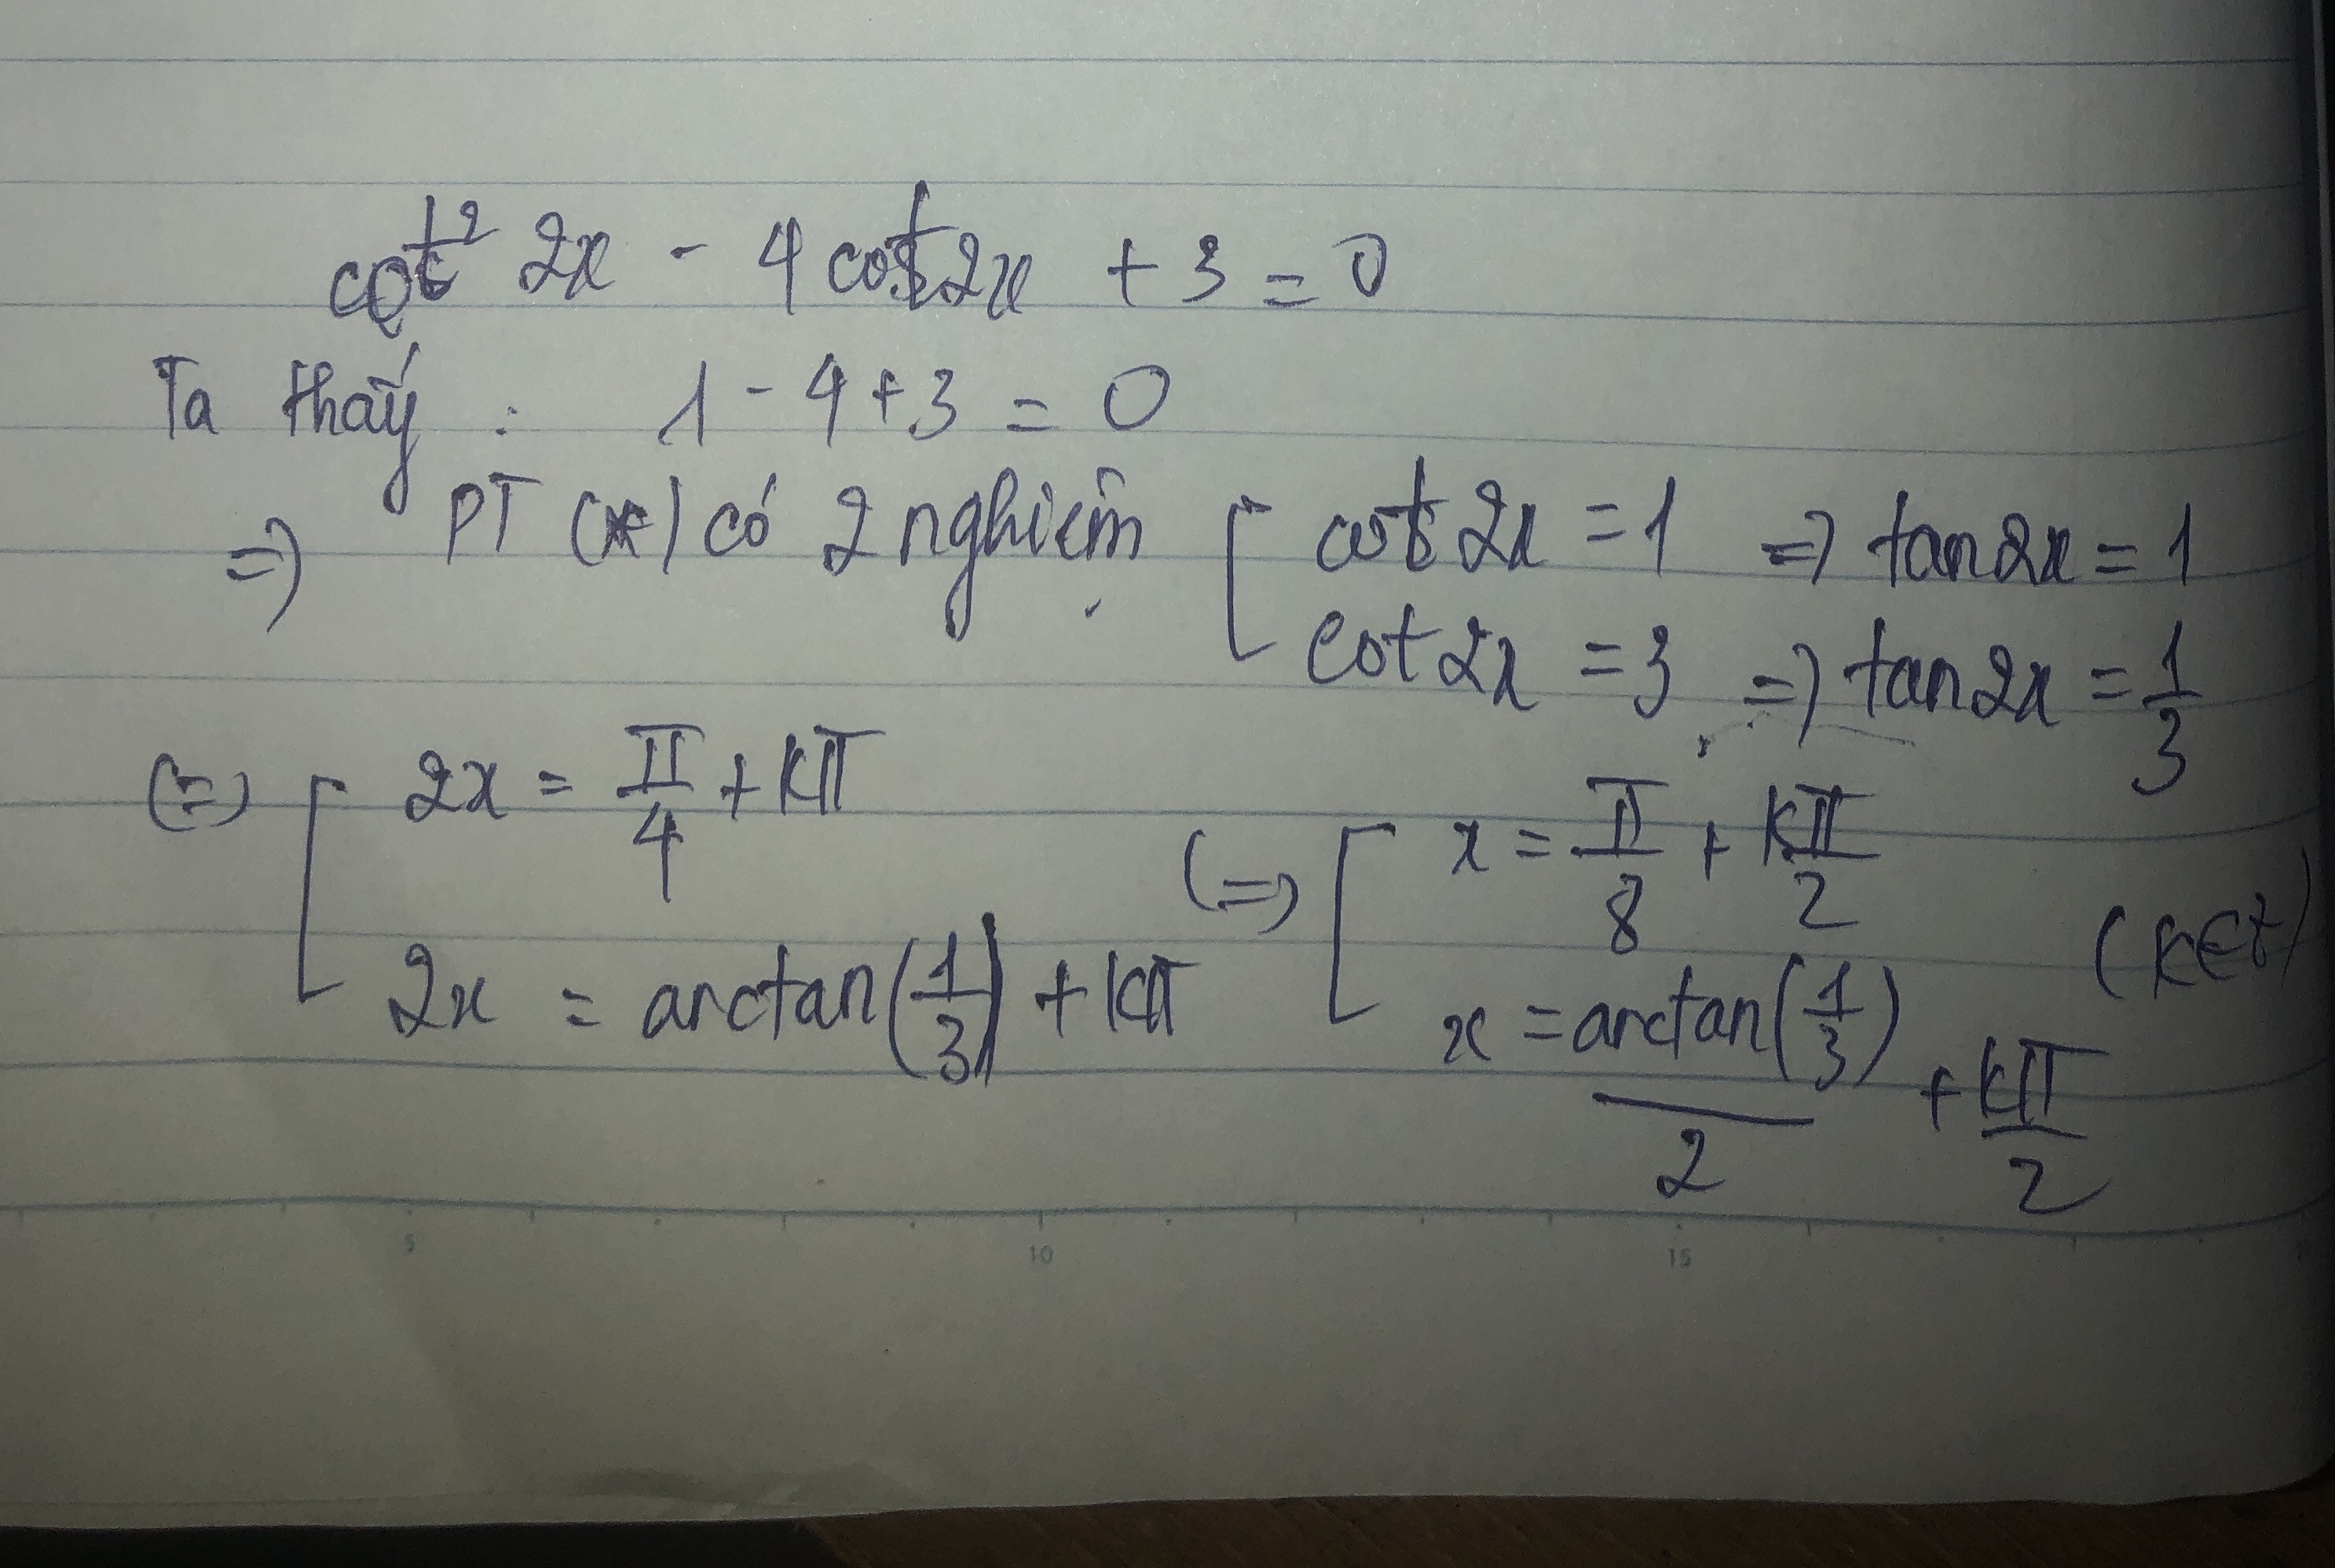 cot² 2x - 4 cot 2x + 3 = 0
Ta thấy : 1 - 4 + 3 = 0
=> PT (*) có 2 nghiệm [ cot 2x = 1 => tan 2x = 1
cot 2x = 3 => tan 2x = 1/3
(=) [ 2x = π/4 + kπ
2x = arctan(1/3) + kπ
(=) [ x = π/8 + kπ/2
x = arctan(1/3)/2 + kπ/2 (k∈Z)
5 10 15